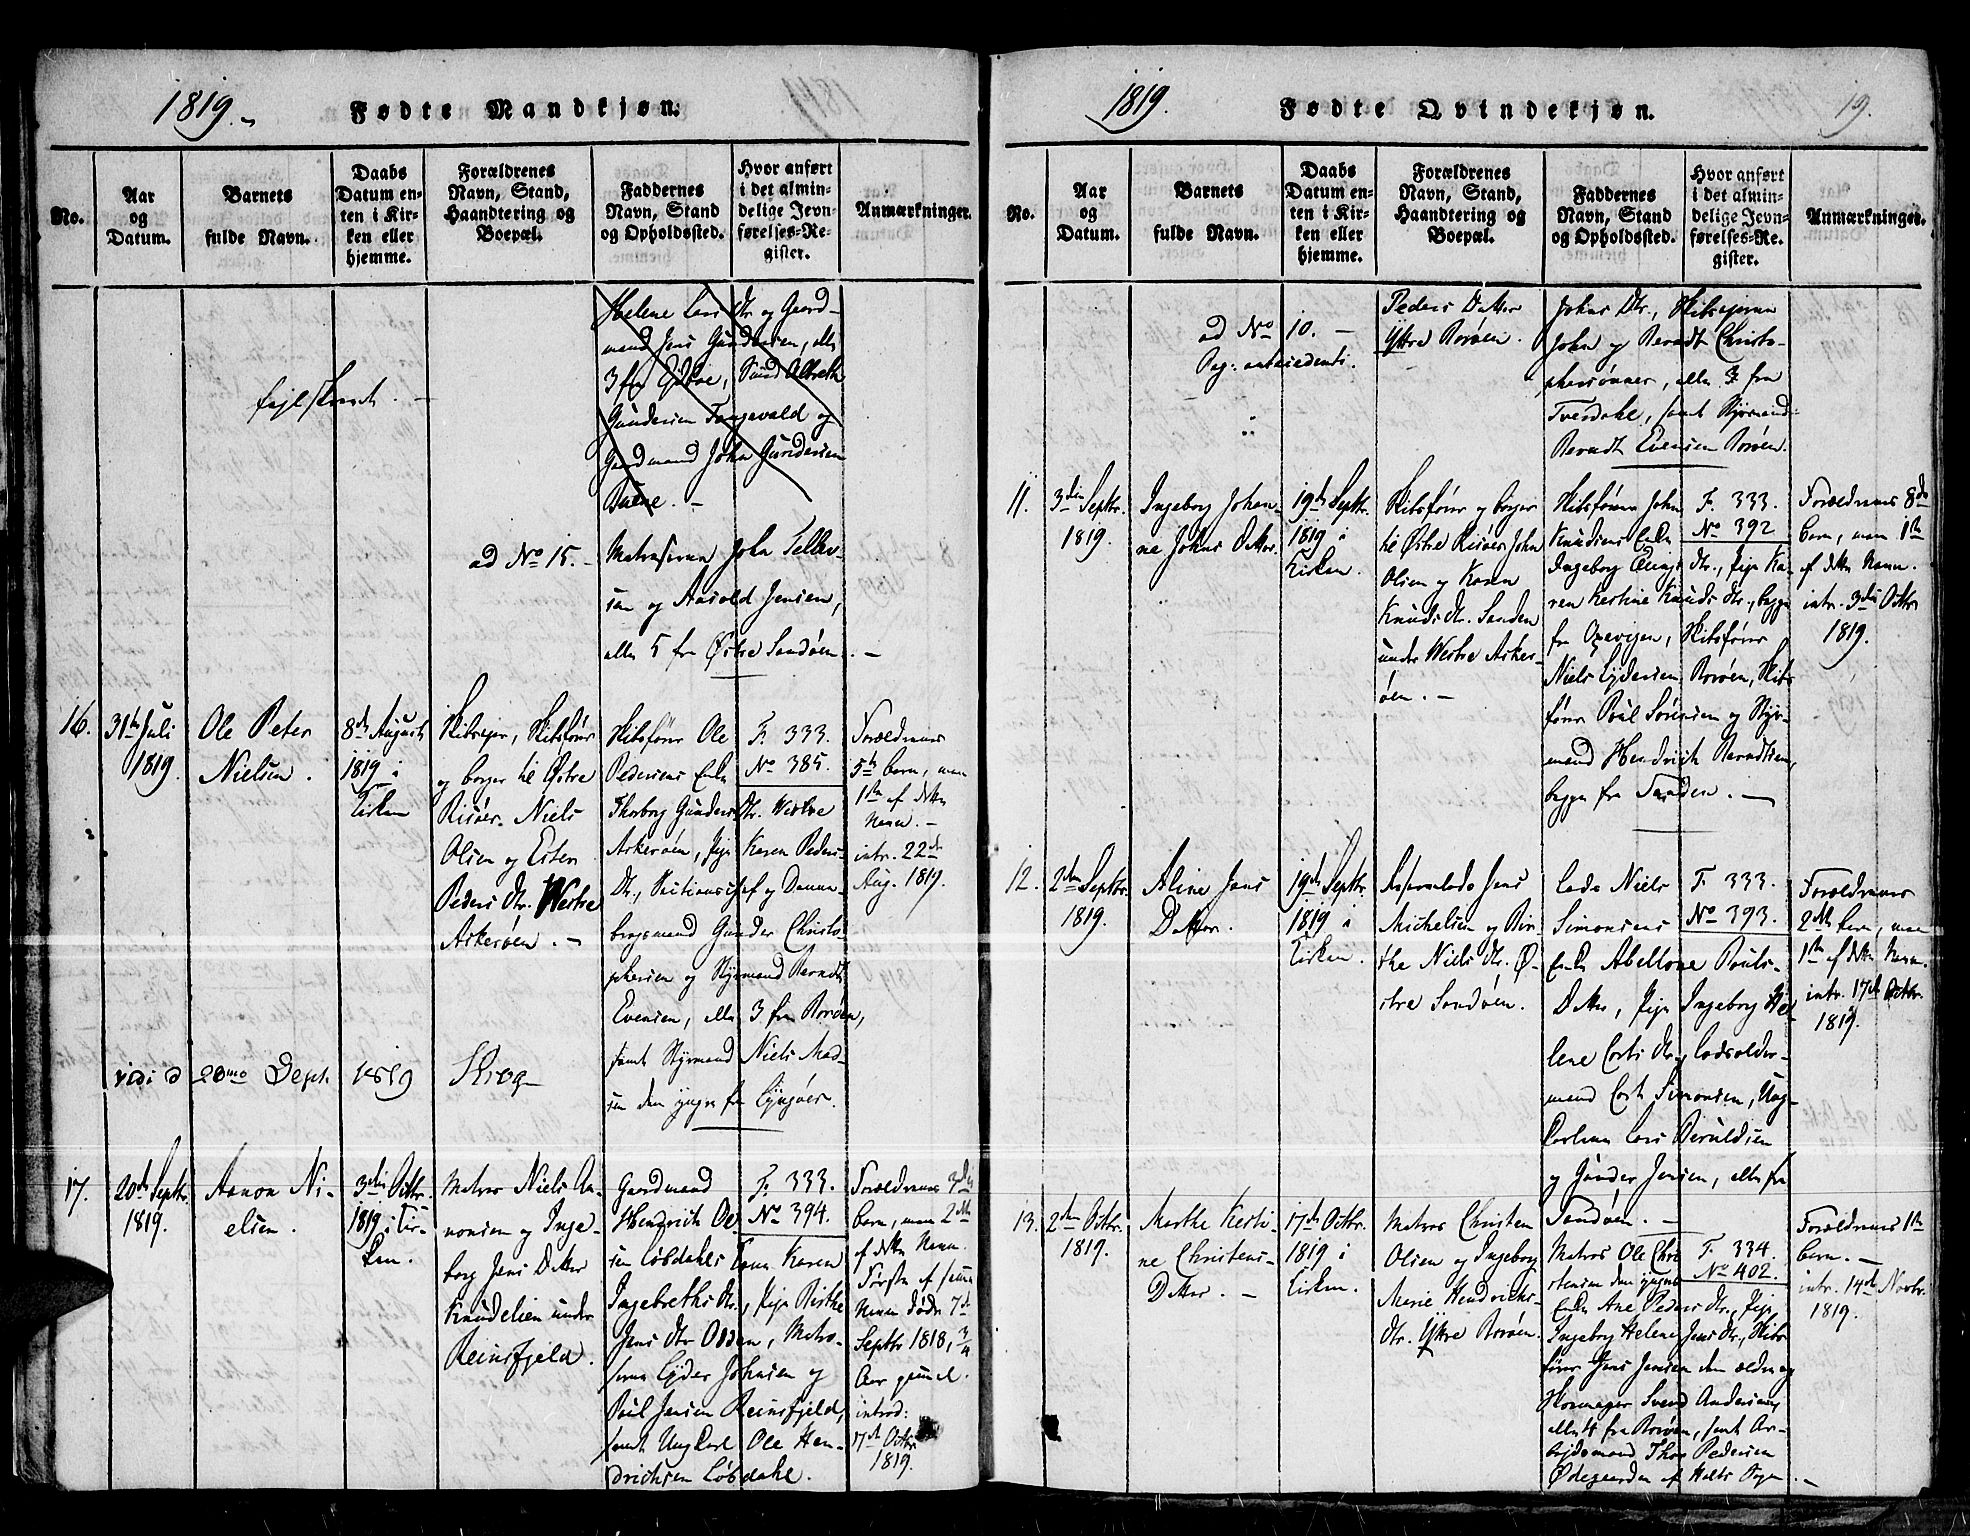 1819.
Fødte Mandkjøn.
No.
Aar
og
Datum.
Barnets
fulde Navn.
Daabs
Datum en-
ten i Kir-
ken eller
hjemme.
Forældrenes
Navn, Stand,
Haandtering og
Boepæl.
Faddernes
Navn, Stand
og Opholdssted.
Hvor anført
i det almin-
delige Jevn-
førelses-Re-
gister.
Anmærkninger.
Helene Lars Dtr og Gaard-
mand Jens Gundersen, alle
3 fra
Gundersen Tangevald og
Gaardmand John Gundersen
ad No 15. -
Matroserne John Tellev-
sen og Aasold Jensen,
alle 5 fra Østre Sandøen. -
16.
31te Juli
1819.
Ole Peter
Nielsen.
8de August
1819 i
Kirken
Skibseier, Skibsfører
og borger til Østre
Risøer Niels
Olsen og Ester
Peders Dtr. Westre
Askerøen. -
Skibsfører Ole
Pedersens Enke
Thorborg Gunders Dtr. Westre
Askerøen, Pige Karen Peders
Dtr., og Danne-
brogsmand Gunder Christo-
phersen og Styrmand Berndt
Evensen, alle 3 fra Borøen,
samt Styrmand Niels Mad-
sen den yngre fra Lyngøer.
F. 333.
No 385.
Forældrenes
5te barn, men
1te af dette
Navn. -
intr. 22de
Aug. 1819.
vidi d 20mo Sept. 1819 Krog
17.
20de Septbr.
1819.
Aanon Ni-
elsen.
3die Octbr.
1819 i Kir-
ken.
Matros Niels Aa-
nonsen og Inge-
borg Jens Datter
Knudelien under
Reinsfjeld.
Gaardmand
Hendrich Ol-
sen Løbdahls Kone Karen
Ingebreths Dtr., Pige Birthe
Jens Dtr Odden, Matro-
serne Lyder Johnsen og
Poul Jensen Reinsfjeld,
samt Ung Carl Ole Hen-
drichsen Løbdahl.
F. 333.
No 394.
Forældrenes 3die
barn, men 2det
af dette Navn.
Første af samme
Navn døde 7de
Septbr 1818, 3/4
Aar gammel.
introd:
17de Octbr.
1819.
1819.
Fødte Qvindekjøn.
19.
No.
Aar
og
Datum.
Barnets
fulde Navn.
Daabs
Datum en-
ten i Kir-
ken eller
hjemme.
Forældrenes
Navn, Stand,
Haandtering og
Boepæl.
Faddernes
Navn, Stand
og Opholdssted.
Hvor anført
i det almin-
delige Jevn-
førelses-Re-
gister.
Anmærkninger.
ad No 10. -
Pag: antecedenti.
Peders Datter
Yttre Borøen.
Johns Dtr., Skibseierne
John og Berndt Christo-
phersønner, alle 3 fra
Tverdahl, samt Styrmand
Berndt Evensen Borøen.
11.
3die Septbr.
1819.
Ingeborg Johan-
ne Johns Datter.
19de Septbr.
1819 i
Kirken.
Skibsfører og borger
til Østre Risøer John
Olsen og Karen
Knuds Dtr. Sanden
under Westre Asker-
øen. -
Skibsfører John
Knudsens Enke
Ingeborg Dtr., Pige Ka-
ren Kestine Knuds Dtr., begge
fra Qvavigen, Skibsfører
Niels Lydersen Borøen, Skibs
fører Poul Sørensen og Styr-
mand Hendrich Berndtsen,
begge fra Sanden. -
F. 333.
No 392
Forældrenes 8de
barn, men 1te
af dette Navn.
intr. 3die Octbr
1819.
12.
2den Septbr.
1819.
Aline Jens
Datter.
19de Septbr.
1819 i
Kirken.
Jens
Michelsen og Bir-
the Niels Dtr. Ø-
stre Sandøen.
Lods Niels
Simonsens
Enke Abellone Pouls-
Datter, Pige Ingeborg He-
lene Corts Dtr., Lodsolder-
mand Cort Simonsen, Ung-
Carlene Lars Beruldsen
og Gunder Jensen, alle fra
Sandøen. -
F. 333.
No 393.
Forældrenes
2det barn, men
1te af dette Navn.
intr. 17de Octbr.
1819.
13.
2den Octbr.
1819.
Marthe Kesti-
ne Christens-
Datter. -
17de Octbr.
1819 i
Kirken.
Matros Christen
Olsen og Ingeborg
Marie Hendrichs-
Dtr. Yttre Borøen.
Matros Ole Chri-
stensen den yngres
Enke Ane Peders Dtr., Pige
Ingeborg Helene Jens Dtr., Skibs-
fører Jens Jensen den ældre og
Svend Andersen,
alle 4 fra Borøen, samt Ar-
bejdsmand Thor Pedersen
Ødegaarden af Holts Sogn. -
F. 334.
No 402.
Forældrenes 1te
barn. -
intr. 14de Novbr.
1819.